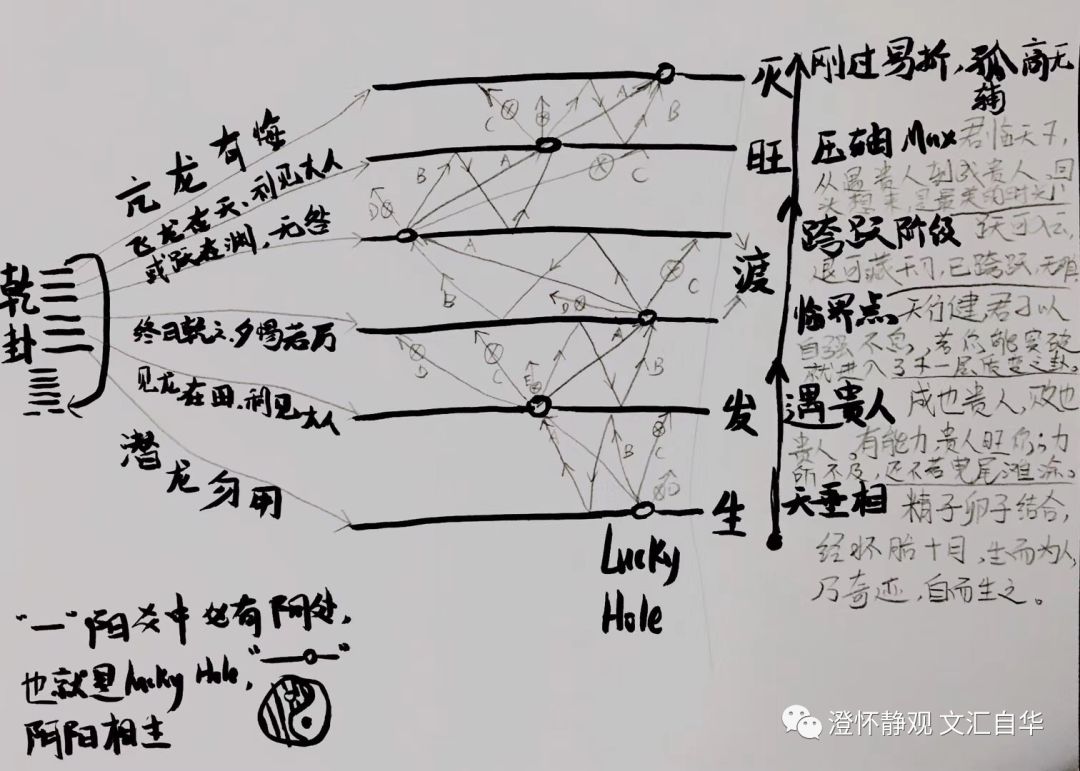 亢龙有悔
飞龙在天,利见大人
或跃在渊,无咎
乾卦
终日乾乾,夕惕若厉
见龙在田,利见大人
潜龙勿用
灭
旺
渡
发
生
刚过易折,孤高无辅
压轴 Max 君临天下,
从遇贵人到成贵人,回
跨跃阶段 跃可入云,
退可藏于门,已跨跃,无咎
临界点。天行健,君子以
自强不息,若你能突破
就进入了下一层质变之卦。
遇贵人 成也贵人,败也
贵人,有能力,贵人旺你;力
所不及,还不若曳尾滩涂。
天垂相 精子卵子结合,
经怀胎十月,生而为人,
乃奇迹,自而生之。
A
B
C
D
E
Lucky
Hole
"一"阳爻中也有阴处,
也就是Lucky Hole,
阴阳相生
澄怀静观 文汇自华